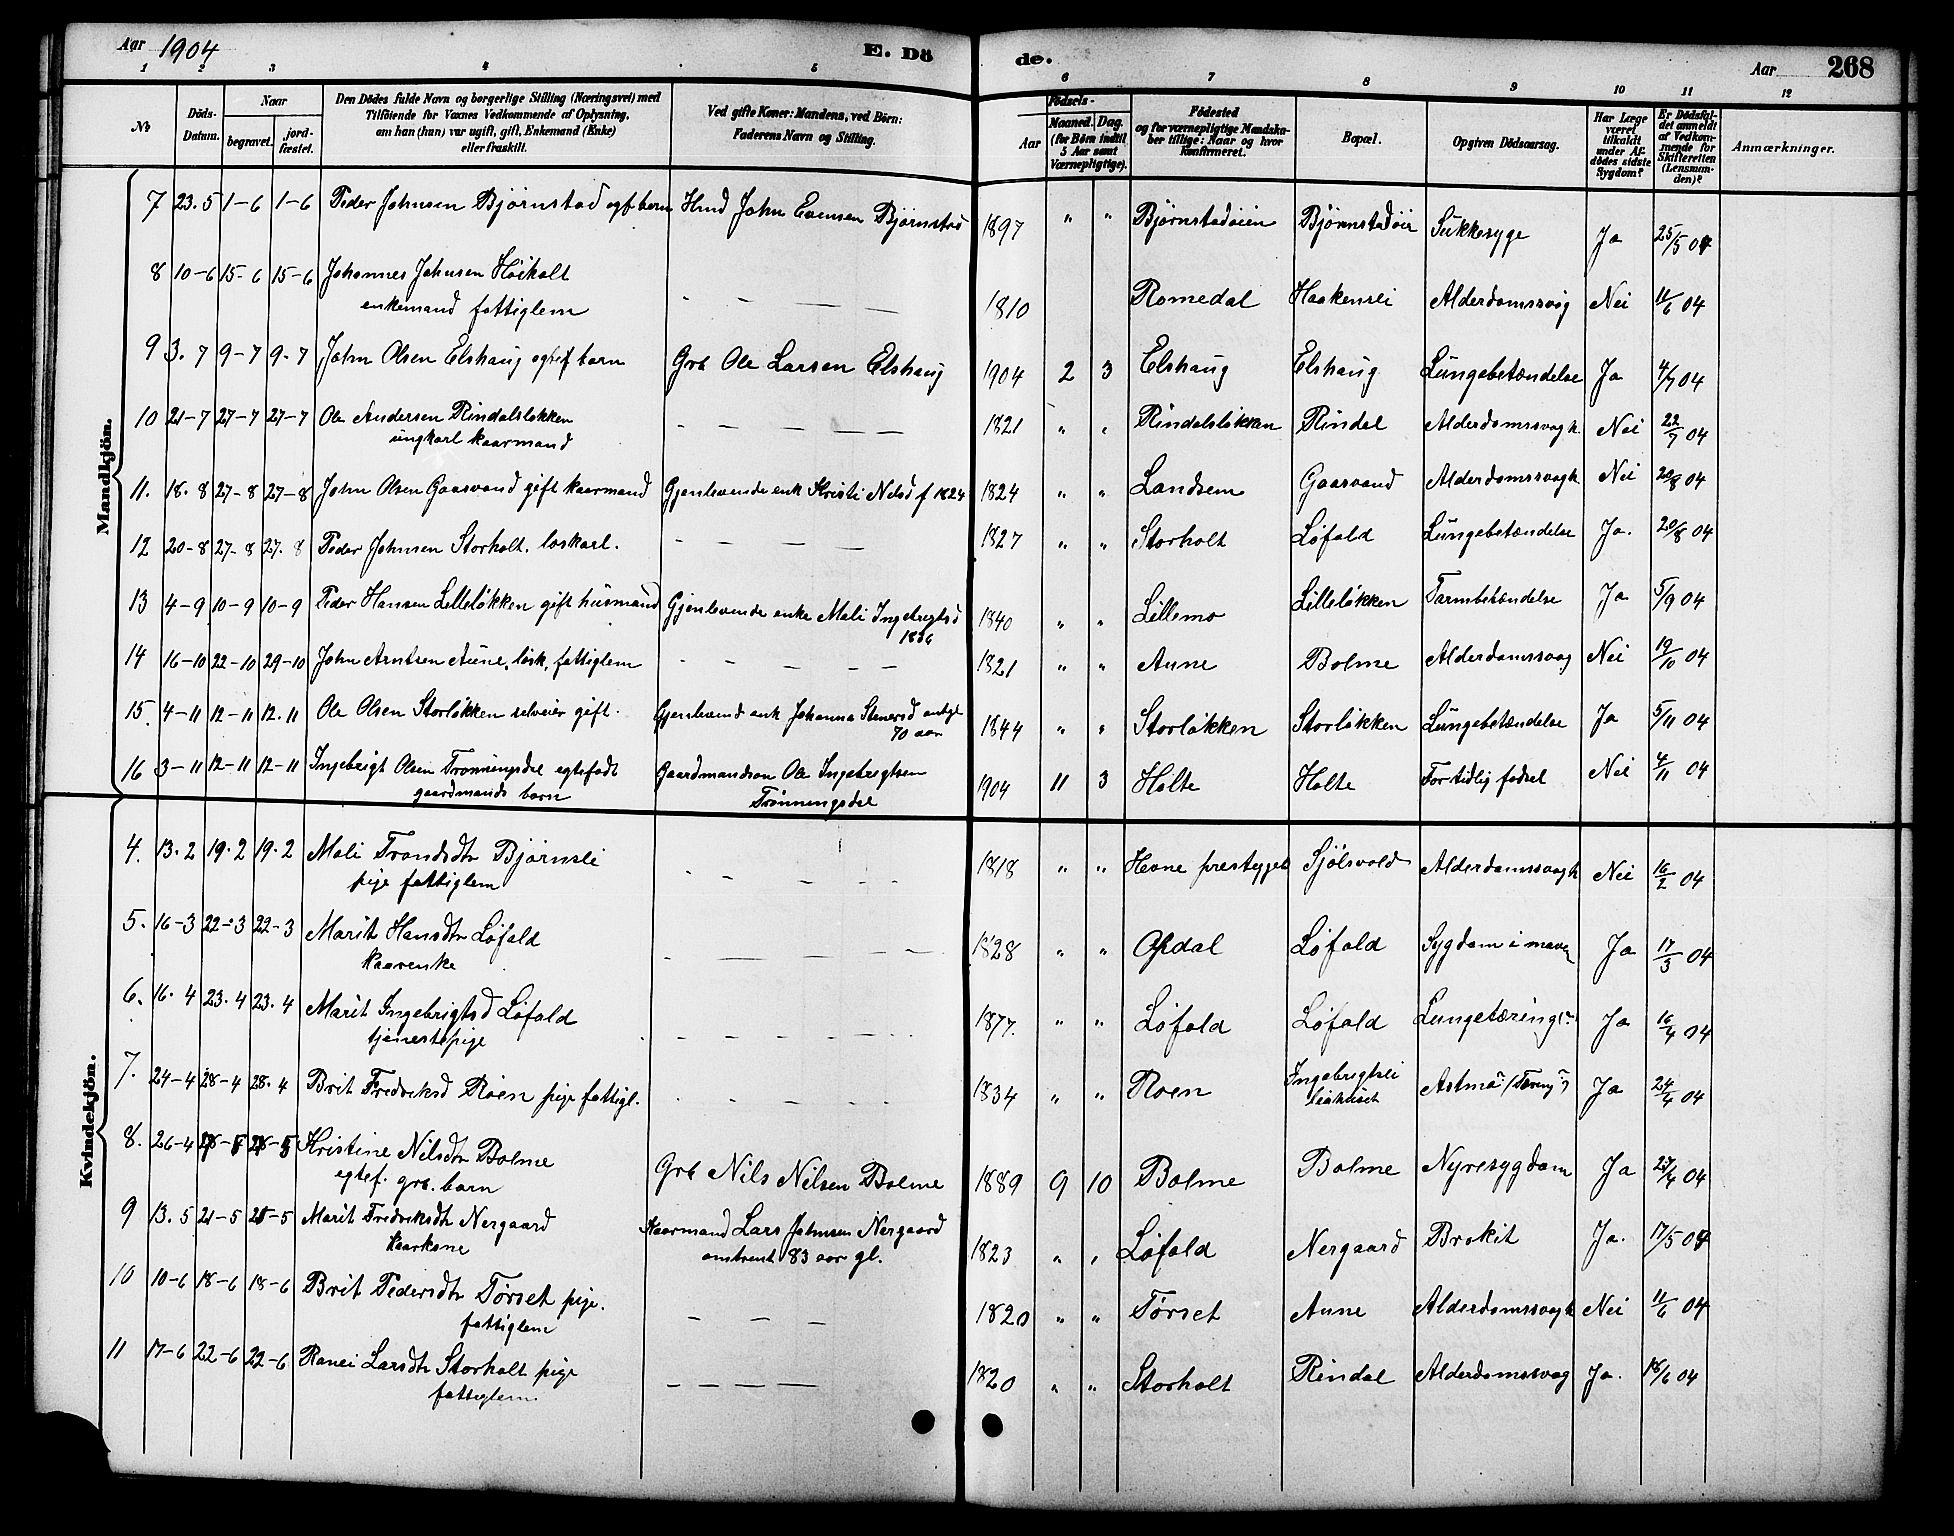 Aar 1904
E. Dö
de.
Aar
268
1 2 3 4 5 6 7 8 9 10 11 12
No
Döds-Datum.
Naar
begravet.
jord-fæstet.
Den Dödes fulde Navn og borgerlige Stilling (Næringsvei) med
Tilföiende for Voxnes Vedkommende af Oplysning,
om han (hun) var ugift, gift, Enkemand (Enke)
eller fraskilt.
Ved gifte Koner: Mandens, ved Börn:
Faderens Navn og Stilling.
Födsels-
Aar
Maaned. Dag.
(for Börn indtil
5 Aar samt
Værnepligtige).
Födested
og for værnepligtige Mandska-
ber tillige: Naar og hvor
konfirmeret.
Bopæl.
Opgiven Dödsaarsag.
Har Læge
været
tilkaldt
under Af-
dödes sidste
Sygdom?
Er Dödsfal-
det anmeldt
af Vedkom-
mende for
Skifteretten
(Lensman-
den)?
Anmærkninger.
Mandkjön.
7 23.5 1-6 1-6 Peder Johnsen Bjørnstad egtf barn Hmd John Evensen Bjørnstad 1897 " " Bjørnstadøien Bjørnstadøie Sukkesyge Ja 25/5 04
8 10-6 15-6 15-6 Johannes Johnsen Høikolt
enkemand fattiglem - - - - - 1810 Romedal Haakensli Alderdomssvag Nei 11/6 04
9 3.7 9-7 9-7 John Olsen Elshaug egtef barn Grb Ole Larsen Elshaug 1904 2 3 Elshaug Elshaug Lungebetændelse Ja 4/7 04
10 21-7 27-7 27-7 Ole Andersen Rindalsløkken
ungkarl kaarmand - - - - - 1821 " " Rindalsløkken Rindal Alderdomssvagh Nei 22/7 04
11. 18.8 27-8 27-8 John Olsen Gaasvand gift kaarmand Gjenlevende enk Kristi Nilsd f 1824 1824 " " Landsem Gaasvand Alderdomssvagh Nei 20/8 04
12 20-8 27-8 27.8 Peder Johnsen Storholt. løskarl. - - - - 1827 " " Storholt Løfald Lungebetændelse Ja. 20/8 04
13 4-9 10-9 10-9 Peder Hansen Lilleløkken gift husmand Gjenlevende enke Mali Ingebrigtsd
1836 1840 " " Lillemo Lilleløkken Tarmbetændelse Ja 5/9 04
14 16-10 22-10 29-10 John Arntsen Aune, løsk, fattiglem - - - - - 1821 " " Aune Bolme Alderdomssvag Nei 19/10 04
15. 4-11 12-11 12.11 Ole Olsen Storløkken selveier gift. Gjenlevend enk Johanna Stenersd
70 aar 1844 " " Storløkken Storløkken Lungebetændelse Ja 5/11 04
16 3-11 12-11 12-11 Ingebrigt Olsen Trønningsdal egtefødt
gaardmands barn Gaardmandsøn Ole Ingebrigtsen
Trønningsdal 1904 11 3 Holte Holte For tidlig fødsel Nei 4/11 04
Kvindekjön.
4. 13.2 19.2 19.2 Mali Trondsdtr Bjørnsli
pige fattiglem - - - - - 1818 " " Hevne prestegjeld Sjølsvold Alderdomssvagh Nei 16/2 04
5. 16-3 22-3 22-3 Marit Hansdtr Løfald
kaarenke - - - - - - 1828 " " Opdal Løfald Sygdom i maven Ja 17/3 04
6. 16.4 23.4 23.4 Marit Ingebrigtsd Løfald
tjenestepige - - - - - 1877. " " Løfald Løfald Lungetæring Ja 16/4 04
7. 24-4 28-4 28.4 Brit Fredriksd Roen pige fattigl. - - - - - 1834 " " Roen Ingebrigtsli Astma (Tæring?) Ja 24/4 04
8. 26-4 Kristine Nilsdtr Bolme
egtef. grb. barn Grb Nils Nilsen Bolme 1889 9 10 Bolme Bolme Nyresygdom Ja 27/4 04
9 13.5 21-5 21-5 Marit Fredriksdtr Nergaard
kaarkone Kaarmand Lars Johnsen Nergaard
omtrent 83 aar gl. 1823 " " Løfald Nergaard Brokit Ja. 17/5 04
10 10-6 18-6 18-6 Brit Pedersdtr Tørset pige.
fattiglem - - - 1820 " " Tørset Aune Alderdomssvagh Nei 11/6 04
11 17-6 22-6 22-6 Ranei Larsdtr Storholt pige
fattiglem. - - - - - 1820 " " Storholt Rindal Alderdomssvag Ja. 18/6 04